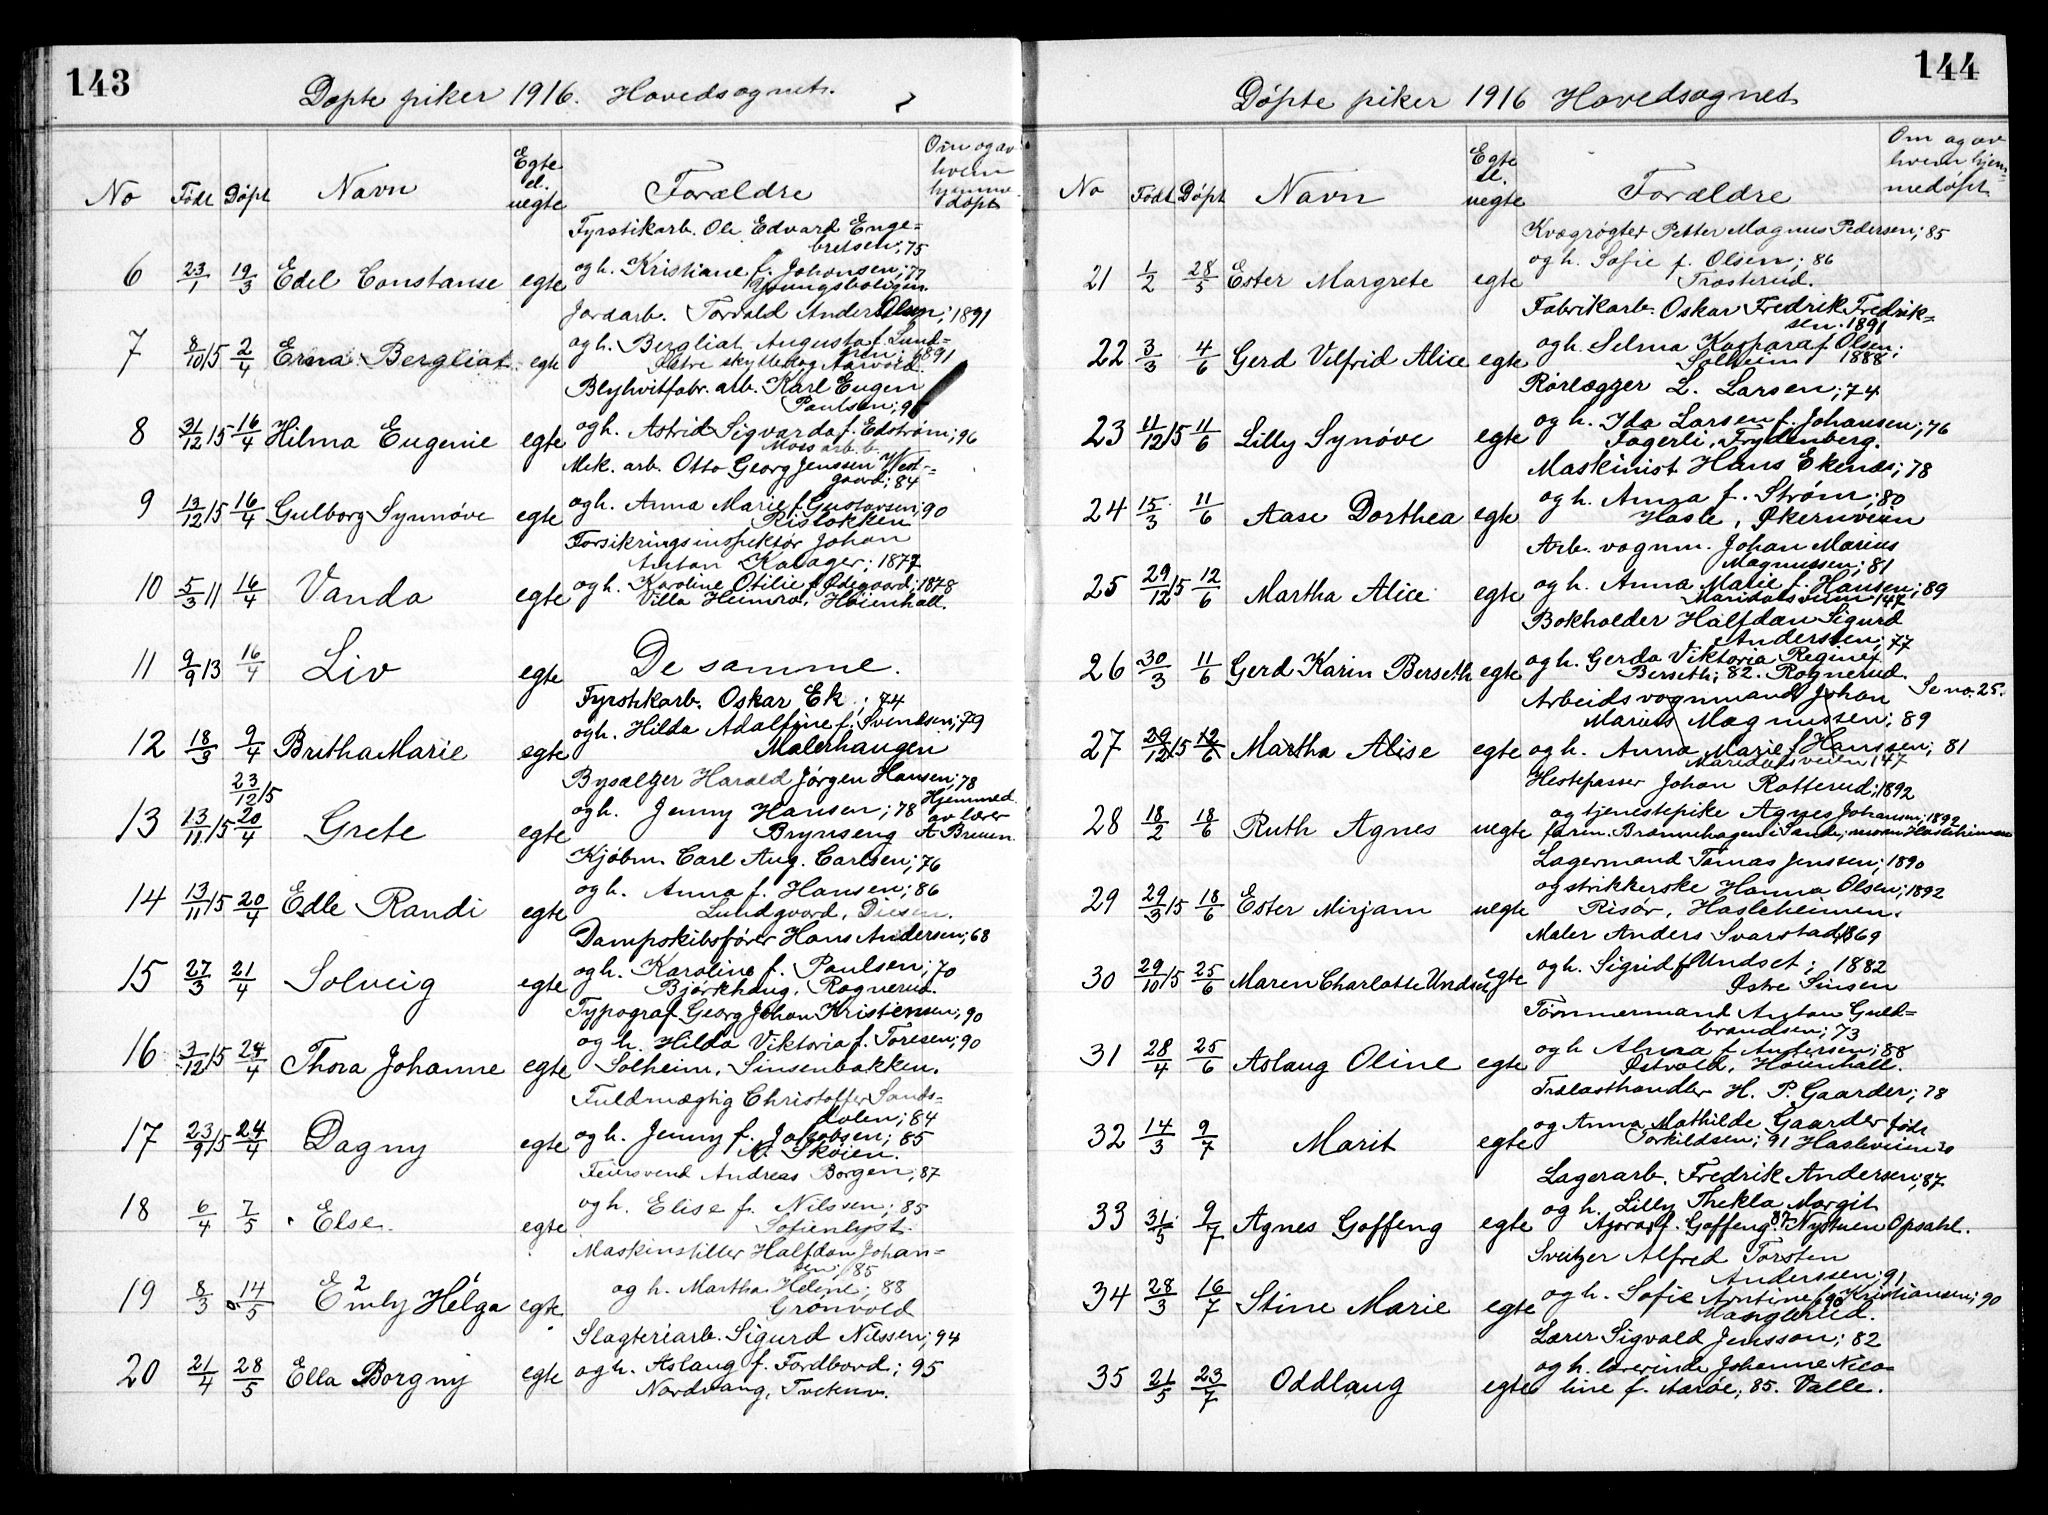 143
Døpte piker 1916. Hovedsognet.
No Født Døpt Navn Egte el. uegte Forældre Om og av hvem hjemmedøpt
Fyrstikarb. Ole Edvard Enge-
bretsen; 75
6 23/1 19/3 Edel Constanse egte og h. Kristiane f. Johansen; 77
Jordarb. Torvald Anders Olsen; 1891
7 8/10 15 2/4 Erna Bergliot egte og h. Bergliot Augusta f. Lund-
gren; 1891
Østre skytterlag Aarvold.
Blyhvitfabr. arb. Karl Eugen
Paulsen; 95
8 31/12 15 16/4 Hilma Eugenie egte og h. Astrid Sigvarda f. Edstrøm; 96
Mek. arb. Otto Georg Jenssen West-
gaard; 84
9 13/12 15 16/4 Gulborg Synnøve egte og h. Anna Marie f. Gustavsen; 90
Risløkken
Forsikringsinspektør Johan
Anton Kalager; 1877
10 5/3 11 16/4 Vanda egte og h. Karoline Otilie f. Ødegaard; 1878
Villa Heimro, Høienhall.
11 9/9 13 16/4 Liv egte De samme.
Fyrstikarb. Oskar Ek; 74
12 18/3 9/4 Brithe Marie egte og h. Hilda Adalfine f. Svendsen; 79
Malerhaugen
Bysælger Harald Jørgen Hansen; 78
23/12 15
13 13/11 15 20/4 Grete egte og h. Jenny Hansen; 78 Hjemmed. av lærer A. Bruun.
Brynseng
Kjøbm. Carl Aug. Carlsen; 76
14 13/11 15 20/4 Edle Randi egte og h. Anna f. Hansen; 86
Lundgaard, Disen.
Dampskibsfører Hans Andersen; 68
15 27/3 21/4 Solveig egte og h. Karoline f. Paulsen; 70
Bjørkhaug, Rognerud.
Typograf Georg Johan Kristensen; 90
16 3/12 15 24/4 Thora Johanne egte og h. Hilda Viktoria f. Toresen; 90
Solheim, Sinsenbakken.
Fuldmægtig Christoffer Sands-
dalen; 84
17 23/9 15 24/4 Dagny egte og h. Jenny f. Jakobsen; 85
N. Skøien.
Feiersvend Andreas Borgen; 87
18 6/4 7/5 Else. egte og h. Elise f. Nilssen; 85
Sofienlyst.
Maskinstiller Halfdan Johan-
sen; 85
19 8/3 14/5 Emly 2 Helga 1 egte og h. Martha Heline; 88
Grønvold
Slagteriarb. Sigurd Nilssen; 94
20 21/4 28/5 Ella Borgny egte og h. Aslaug f. Fordbord; 95
Nordvang, Tvetenv.
144
Døpte piker 1916 Hovedsognet
No Født Døpt Navn Egte el. uegte Forældre Om og av hvem hjemmedøpt
Kvægrøgter Petter Magnus Pedersen; 85
21 1/2 28/5 Ester Margrete egte og h. Sofie f. Olsen; 86
Trosterud.
Fabrikarb. Oskar Fredrik Fredrik-
sen. 1891
22 3/3 4/6 Gerd Vilfrid Alice egte og h. Selma Kaspara f. Olsen;
Solheim 1888
Rørlægger L. Larsen; 74
23 11/12 15 11/6 Lilly Synøve egte og h. Ida Larsen f. Johansen; 76
Fagerli, Frydenberg.
Maskinist Hans Ekenæs; 78
24 15/3 11/6 Aase Dorthea egte og h. Anna f. Strøm; 80
Hasle, Økernveien
Arb. vognm. Johan Marius
Magnussen; 81
25 29/12 15 12/6 Martha Alice egte og h. Anna Marie f. Hansen; 89
Maridalsveien 147
Bokholder Halfdan Sigurd
Anderssen; 77
26 30/3 11/6 Gerd Karin Berseth egte og h. Gerda Viktoria Regine f.
Berseth; 82. Rognerud.
Arbeidsvognmand Johan Se no. 25.
Marius Magnussen; 89
27 29/12 15 12/6 Martha Alise egte og h. Anna Marie f. Hanssen; 81
Maridalsveien 147
Hestepasser Johan Rotterud; 1892
28 18/2 18/6 Ruth Agnes uegte og tjenestepike Agnes Johansen; 1892
Lagermand Tomas Jenssen; 1890
29 29/3 15 18/6 Ester Mirjam uegte og strikkerske Hanna Olsen; 1892
Risør, Hasleheimen.
Maler Anders Svarstad; 1869
30 29/10 15 25/6 Maren Charlotte Undset egte og h. Sigrid f. Undset; 1882
Østre Sinsen
Tømmermand Anton Guld-
brandsen; 73
31 28/4 25/6 Aslaug Oline egte og h. Alma f. Andersen; 88
Østvold, Høienhall.
Trælasthandler H. P. Gaarder; 78
32 14/3 9/7 Marit egte og Anna Mathilde Gaarder født
Torkildsen; 91 Hasleveien 20
Lagerarb. Fredrik Andersen; 87
33 31/5 9/7 Agnes Goffeng egte og h. Lilly Thekla Margit
Ajora f. Goffeng; 87 Nystuen Opsahl.
Sveitzer Alfred Torsten
Anderssen; 91
34 28/3 16/7 Stine Marie egte og h. Sofie Antine f. Kristiansen; 90
Manglerud.
Lærer Sigvald Jensson; 82
35 21/5 23/7 Oddlaug egte og h. lærerinde Johanne Nico-
line f. Aarøe; 85. Valle.